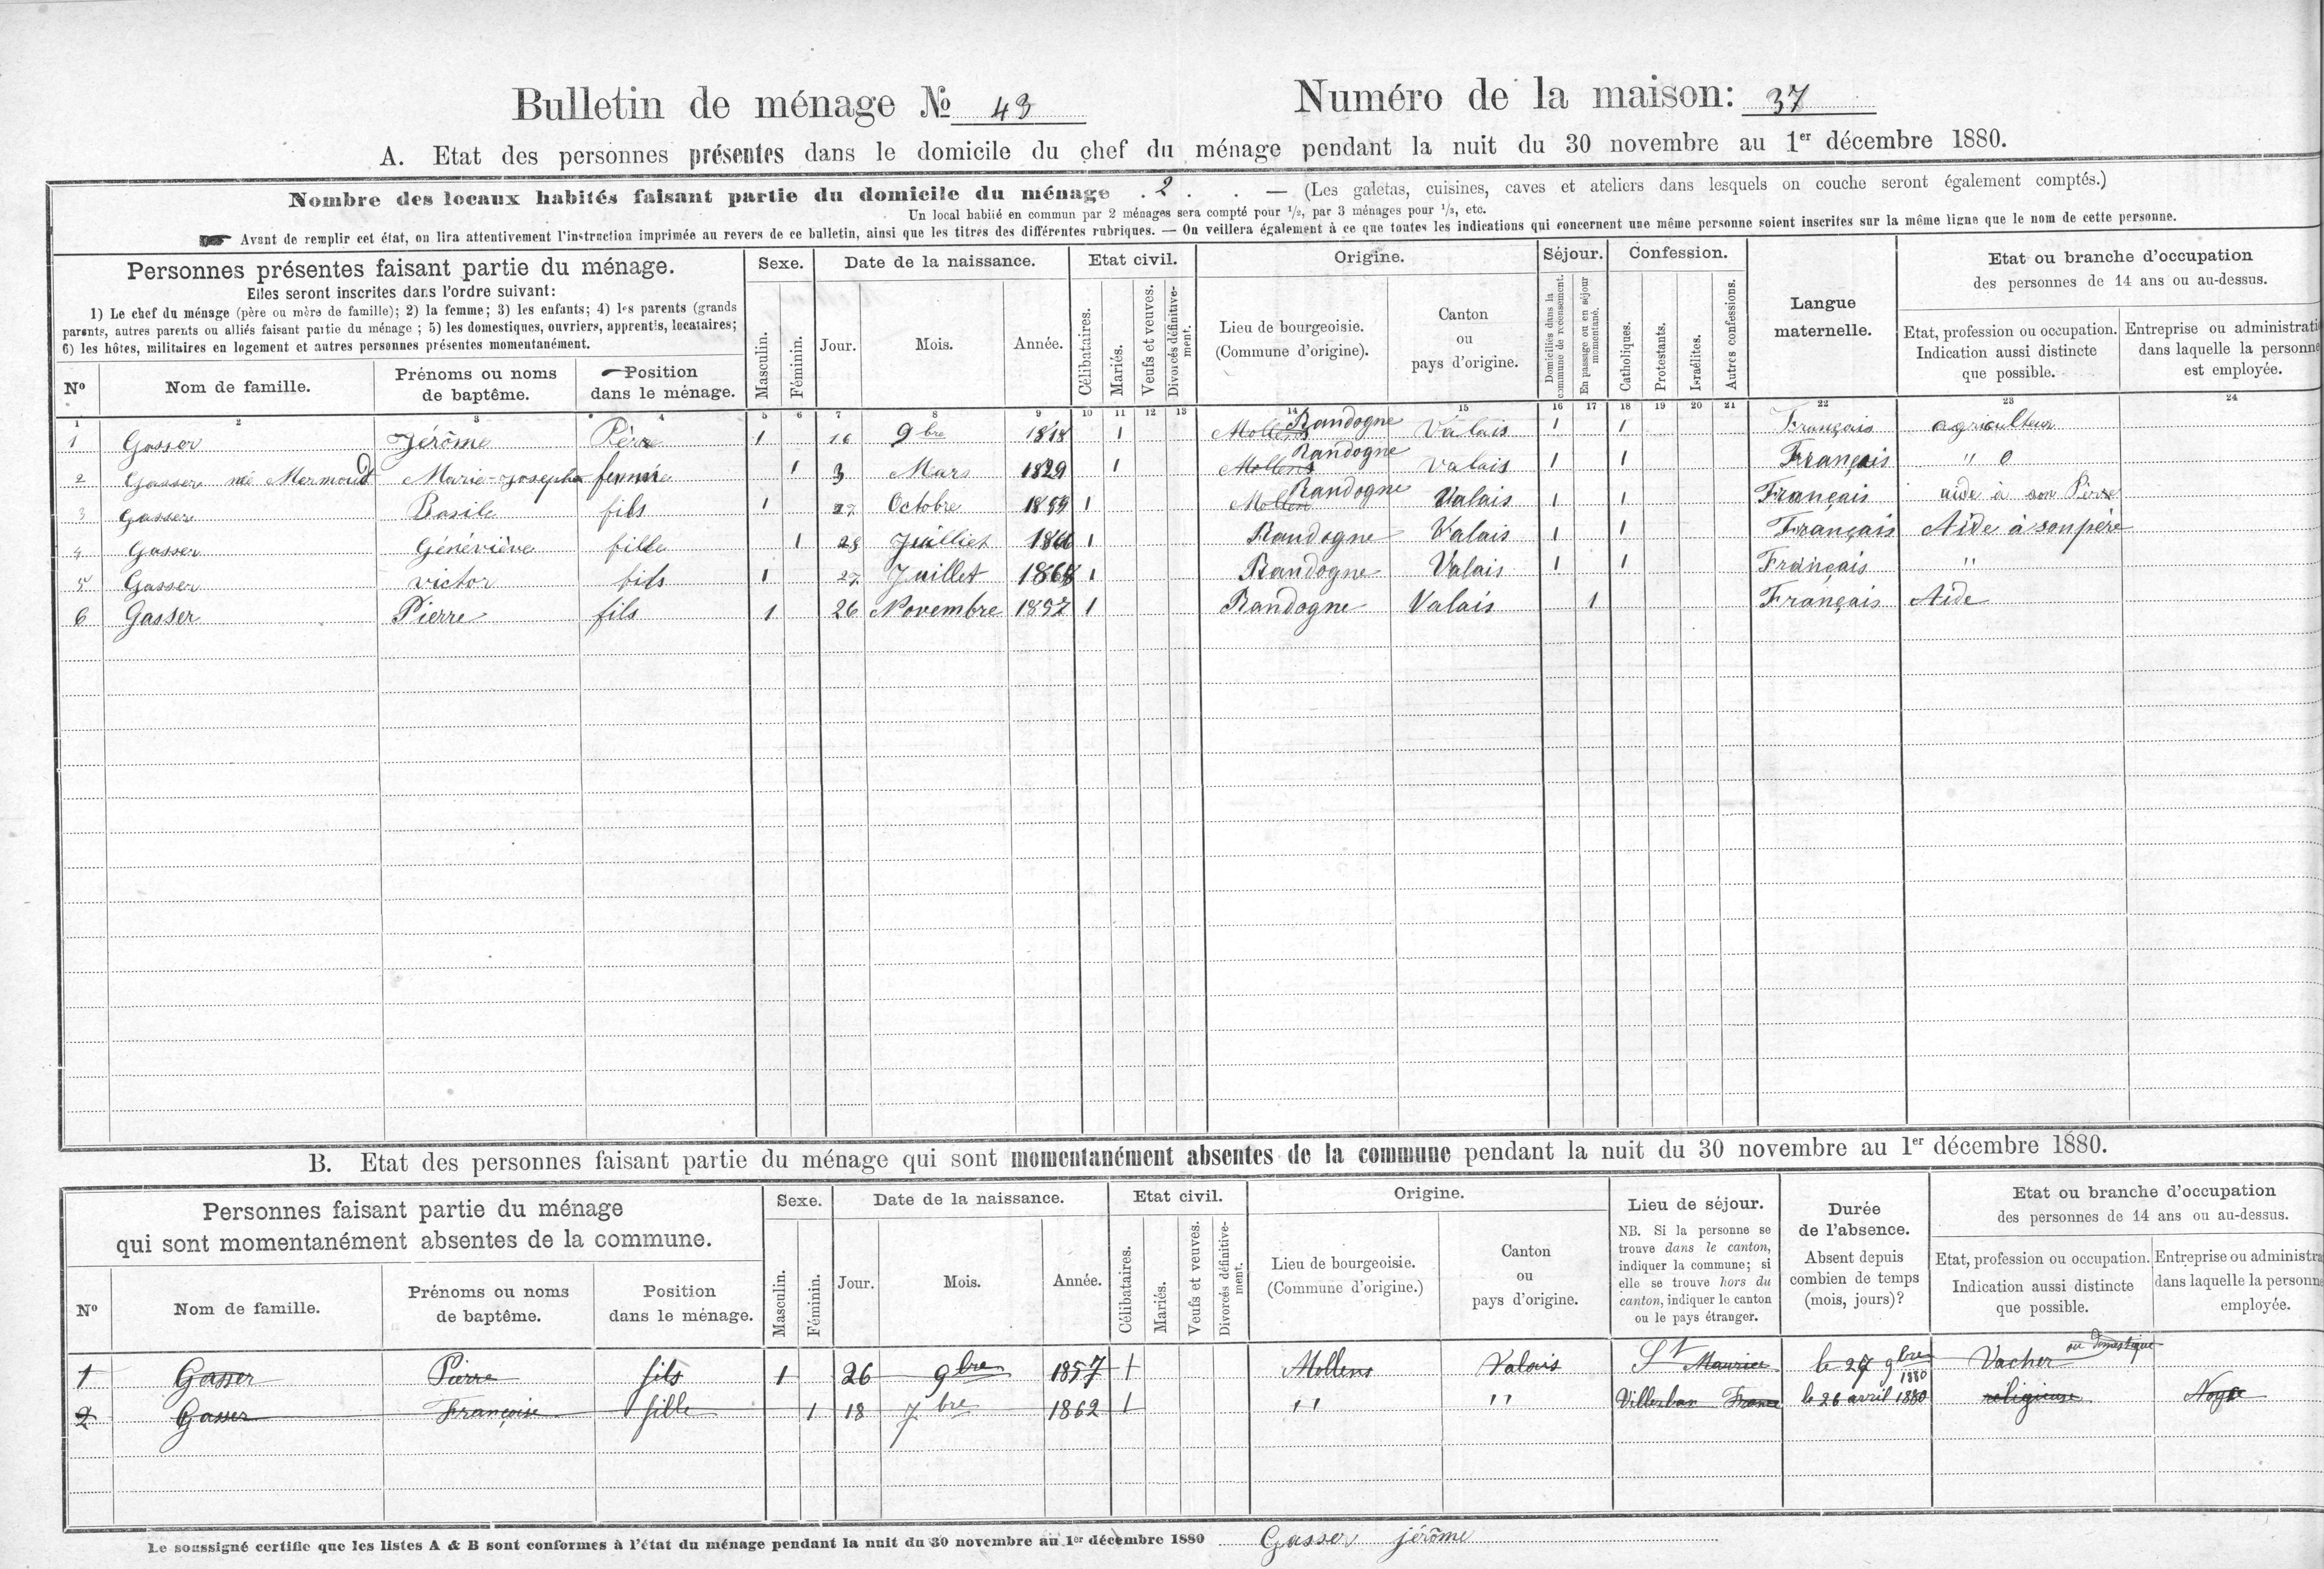 Bulletin de ménage № 43 Numéro de la maison: 37
A. Etat des personnes présentes dans le domicile du chef du ménage pendant la nuit du 30 novembre au 1er décembre 1880.
Nombre des locaux habités faisant partie du domicile du ménage . 2 . . — (Les galetas, cuisines, caves et ateliers dans lesquels on couche seront également comptés.)
Un local habité en commun par 2 ménages sera compté pour 1/2, par 3 ménages pour 1/3, etc.
Avant de remplir cet état, on lira attentivement l'instruction imprimée au revers de ce bulletin, ainsi que les titres des différentes rubriques. — On veillera également à ce que toutes les indications qui concernent une même personne soient inscrites sur la même ligne que le nom de cette personne.
Personnes présentes faisant partie du ménage.
Elles seront inscrites dans l'ordre suivant:
1) Le chef du ménage (père ou mère de famille); 2) la femme; 3) les enfants; 4) les parents (grands
parents, autres parents ou alliés faisant partie du ménage ; 5) les domestiques, ouvriers, apprentis, locataires;
6) les hôtes, militaires en logement et autres personnes présentes momentanément.
Nº
Nom de famille.
Prénoms ou noms
de baptême.
Position
dans le ménage.
Sexe.
Masculin.
Féminin.
Date de la naissance.
Jour.
Mois.
Année.
Etat civil.
Célibataires.
Mariés.
Veufs et veuves.
Divorcés définitive-
ment.
Origine.
Lieu de bourgeoisie.
(Commune d'origine).
Canton
ou
pays d'origine.
Séjour.
Domiciliés dans la
commune de recensement.
En passage ou en séjour
momentané.
Confession.
Catholiques.
Protestants.
Israélites.
Autres confessions.
Langue
maternelle.
Etat ou branche d'occupation
des personnes de 14 ans ou au-dessus.
Etat, profession ou occupation.
Indication aussi distincte
que possible.
Entreprise ou administrati
dans laquelle la personne
est employée.
1 2 3 4 5 6 7 8 9 10 11 12 13 14 15 16 17 18 19 20 21 22 23 24
1 Gasser Jérôme Père 1 16 9bre 1818 1 Mollens Randogne Valais 1 1 Français agriculteur
2 Gasser né Mermoudt Marie-Josepha femme 1 3 Mars 1829 1 Mollens Randogne Valais 1 1 Français " 0
3 Gasser Basile fils 1 27 Octobre 1 Mollens Randogne Valais 1 1 Français aide à son Père
4 Gasser Généviève fille 1 28 Juilliet 1 Randogne Valais 1 1 Français Aide à son père
5 Gasser victor fils 1 27 Juillet 1868 1 Randogne Valais 1 1 Français "
6 Gasser Pierre fils 1 26 Novembre 1857 1 Randogne Valais 1 Français Aide
B. Etat des personnes faisant partie du ménage qui sont momentanément absentes de la commune pendant la nuit du 30 novembre au 1er décembre 1880.
Personnes faisant partie du ménage
qui sont momentanément absentes de la commune.
Nº
Nom de famille.
Prénoms ou noms
de baptême.
Position
dans le ménage.
Sexe.
Masculin.
Féminin.
Date de la naissance.
Jour.
Mois.
Année.
Etat civil.
Célibataires.
Mariés.
Veufs et veuves.
Divorcés définitive-
ment.
Origine.
Lieu de bourgeoisie.
(Commune d'origine.)
Canton
ou
pays d'origine.
Lieu de séjour.
NB. Si la personne se
trouve dans le canton,
indiquer la commune; si
elle se trouve hors du
canton, indiquer le canton
ou le pays étranger.
Durée
de l'absence.
Absent depuis
combien de temps
(mois, jours)?
Etat ou branche d'occupation
des personnes de 14 ans ou au-dessus.
Etat, profession ou occupation.
Indication aussi distincte
que possible.
Entreprise ou administra
dans laquelle la personne
employée.
1 Gasser Pierre fils 1 26 9bre 1857 1 Mollens Valais St Maurice le 9bre 1880 Vacher ou domestique
2 Gasser Françoise fille 1 18 7bre 1862 1 " " Villerban France le 26 avril 1880 religieuse
Le soussigné certifie que les listes A & B sont conformes à l'état du ménage pendant la nuit du 30 novembre au 1er décembre 1880 Gasser jérôme